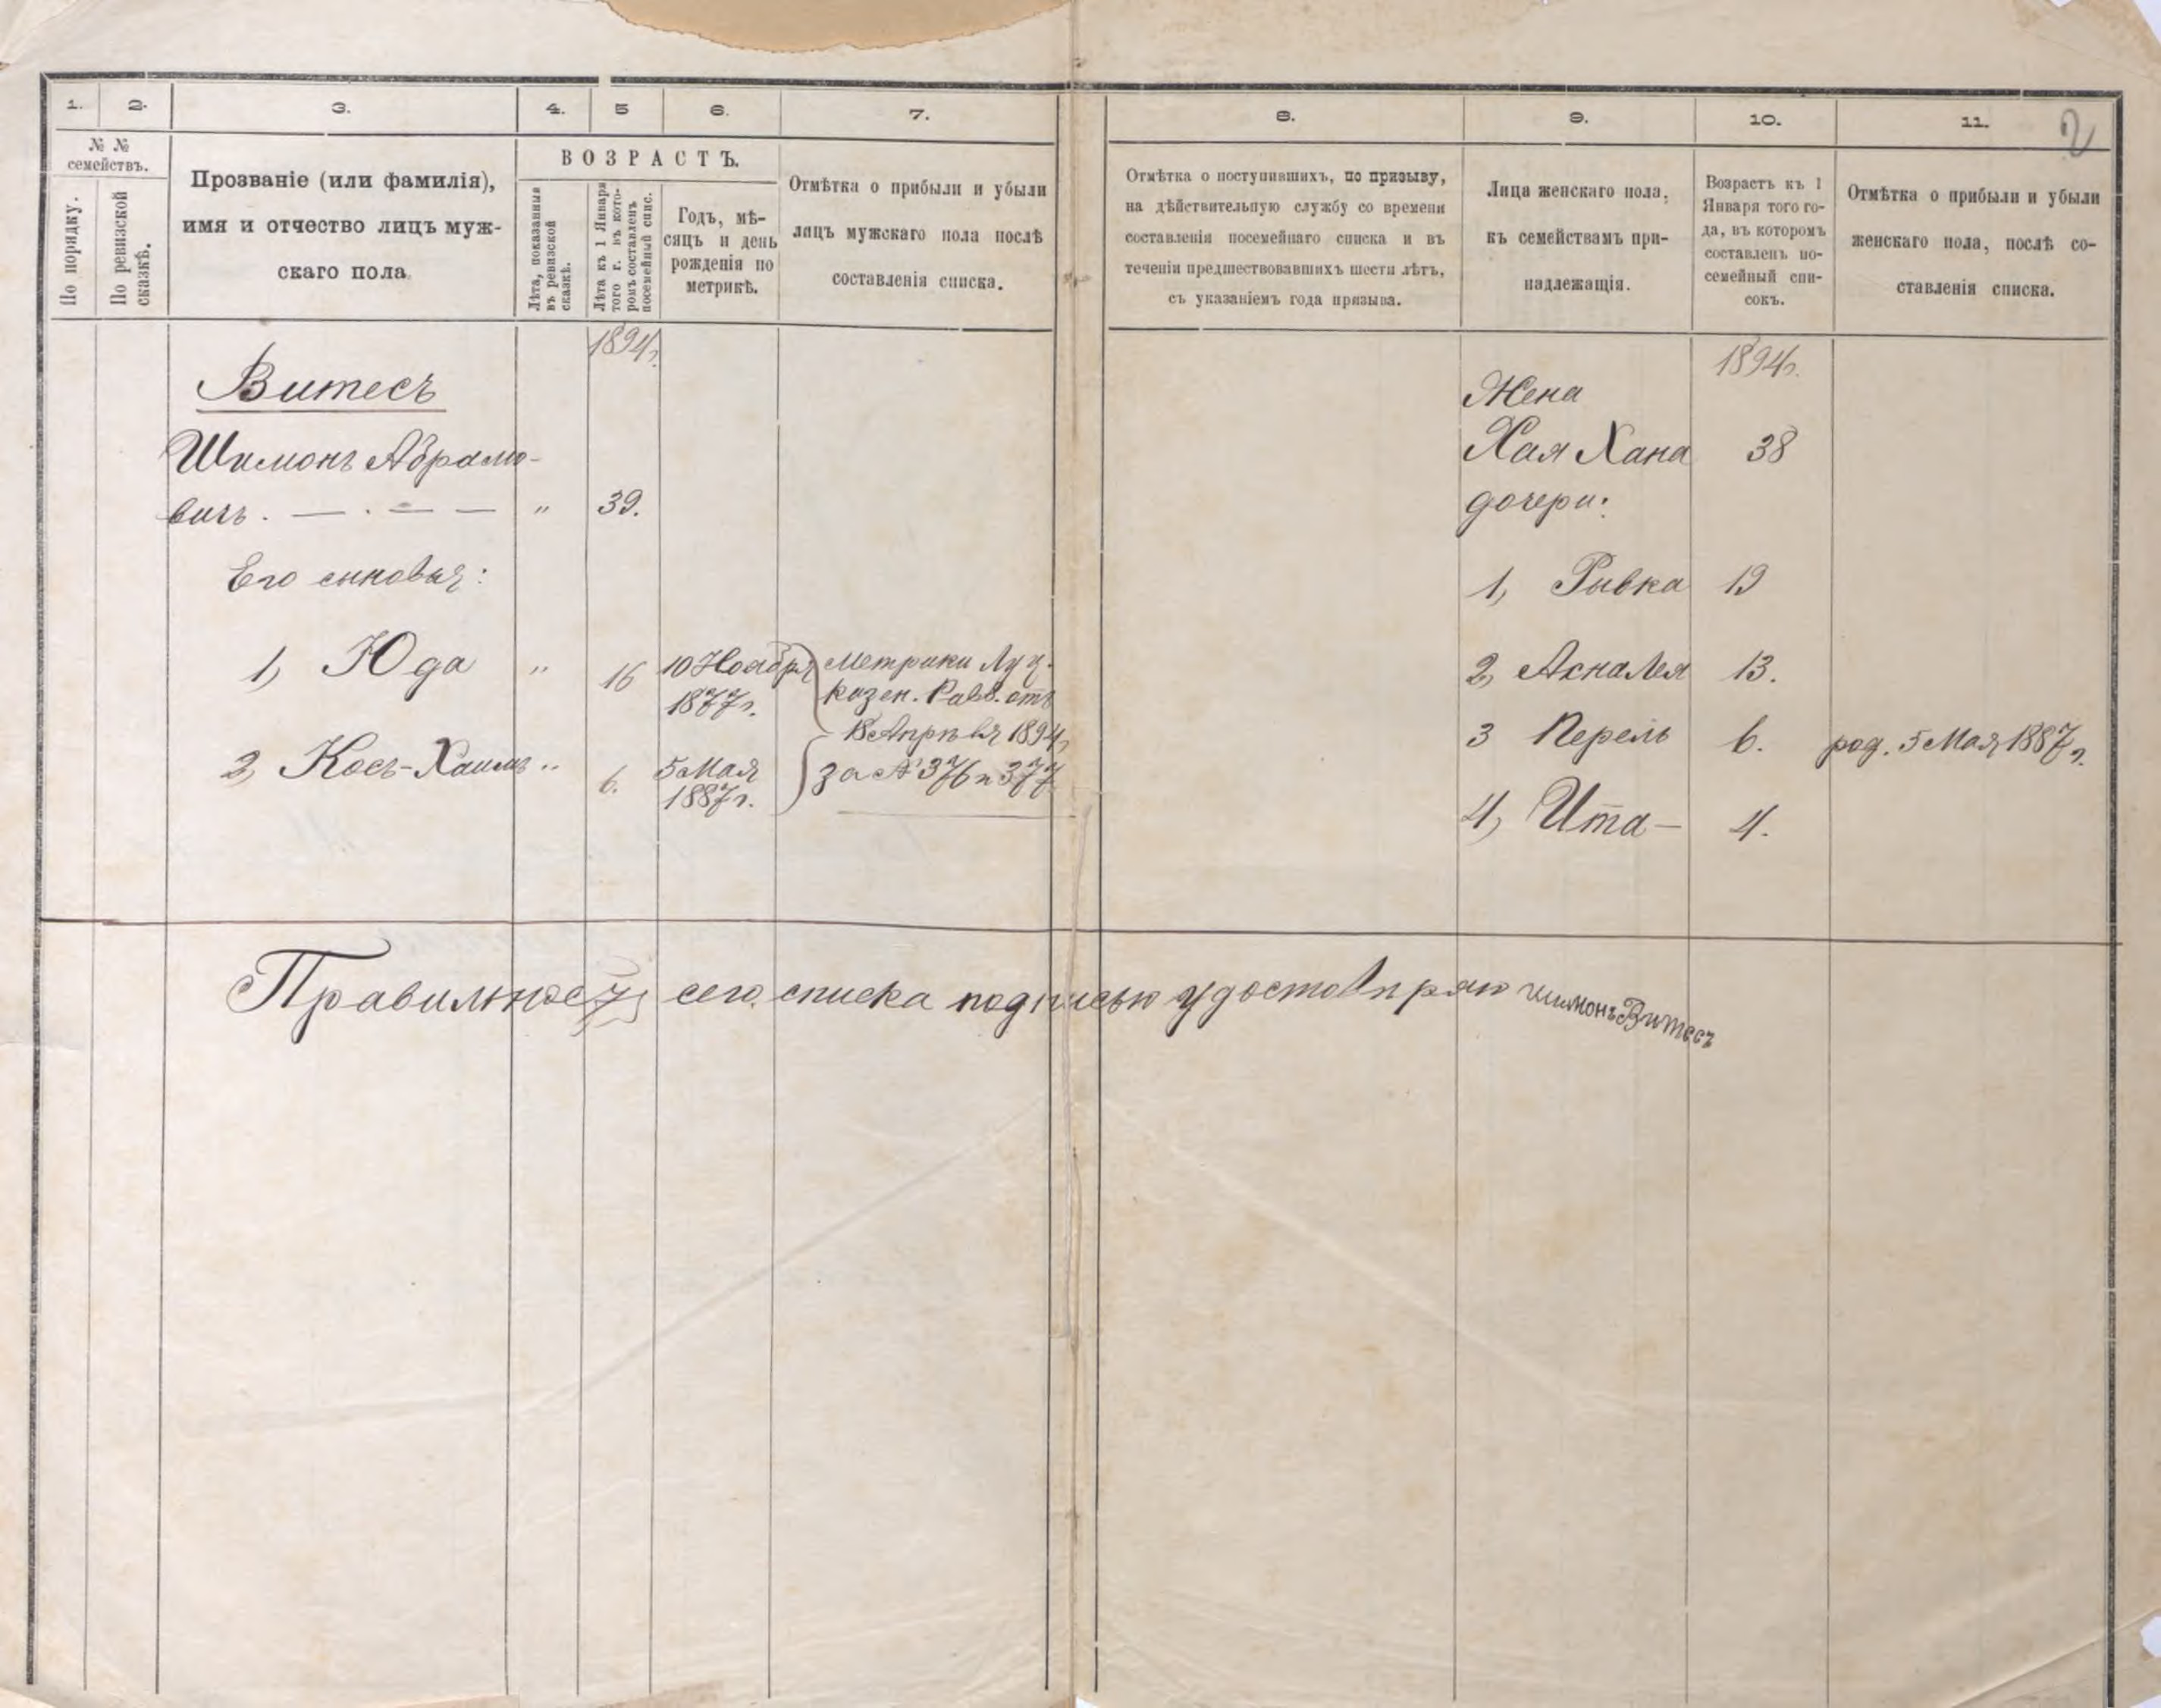 1.
2.
3.
4.
5
6.
7.
8.
9.
10.
11.
2
№ №
семействъ.
По порядку.
По ревизской
сказкѣ.
Прозваніе (или фамилія),
имя и отчество лицъ муж-
скаго пола
ВОЗРАСТЪ.
Лѣта, показанныя
въ ревизской
сказкѣ.
Лѣта къ 1 Января
того г. въ кото-
ромъ составленъ
посемейный спис.
Годъ, мѣ-
сяцъ и день
рожденія по
метрикѣ.
Отмѣтка о прибыли и убыли
лицъ мужскаго пола послѣ
составленія списка.
Отмѣтка о поступившихъ, по призыву,
на дѣйствительную службу со времени
составленія посемейнаго списка и въ
теченіи предшествовавшихъ шести лѣтъ,
съ указаніемъ года призыва.
Лица женскаго пола,
къ семействамъ при-
надлежащія.
Возрастъ къ 1
Января того го-
да, въ которомъ
составленъ по-
семейный спи-
сокъ.
Отмѣтка о прибыли и убыли
женскаго пола, послѣ со-
ставленія списка.
1894г.
Витесъ
Шимонъ Абрамо-
вичъ. — · — — " 39.
Его сыновья:
1, Юда " 16 10 Ноября
1877г.
2, Косъ-Хаимъ " 6. 5 Мая
1887г.
Метрики Луц.
казен. Равв. отъ
18 Апрѣля 1894г
за № 376 и 377
1894г.
Жена
Хая Хана 38
дочери:
1, Рывка 19
2, Аснa Лея 13.
3 Перель 6. род. 5 Мая 1887г.
4, Ита — 4.
сего списка подписью удостовѣряю Шимонъ Витесъ